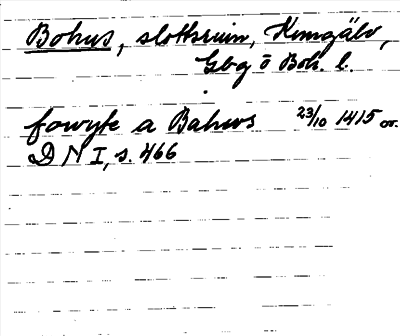 Bohus, slottsruin, Kungälv,
Gbg o Boh. l.
fowyte a Bahws 23/10 1415 or.
D N I, s. 466